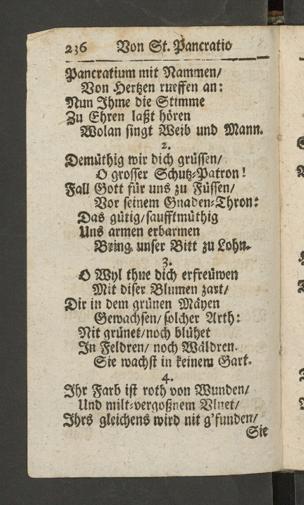 236 Von St. Pancratio
Pancratium mit Nammen/
Von Hertzen rueffen an:
Nun Ihme die Stimme
Zu Ehren laßt hören
Wolan singt Weib und Mann.
2.
Demüthig wir dich grüssen/
O grosser Schutz-Patron!
Fall Gott für uns zu Füssen/
Vor seinem Gnaden-Thron:
Das gütig/saufftmüthig
Uns armen erbarmen
Bring unser Bitt zu Lohn.
3.
O Wyl thue dich erfreüwen
Mit diser Blumen zart/
Dir in dem grünen Mäyen
Gewachsen/ solcher Arth:
Nit grünet/noch blühet
In Feldren/ noch Wäldren.
Sie wachst in keinem Gart.
4.
Ihr Farb ist roth von Wunden/
Und milt-vergoßnem Bluet/
Ihrs gleichens wird nit g'funden/
Sie